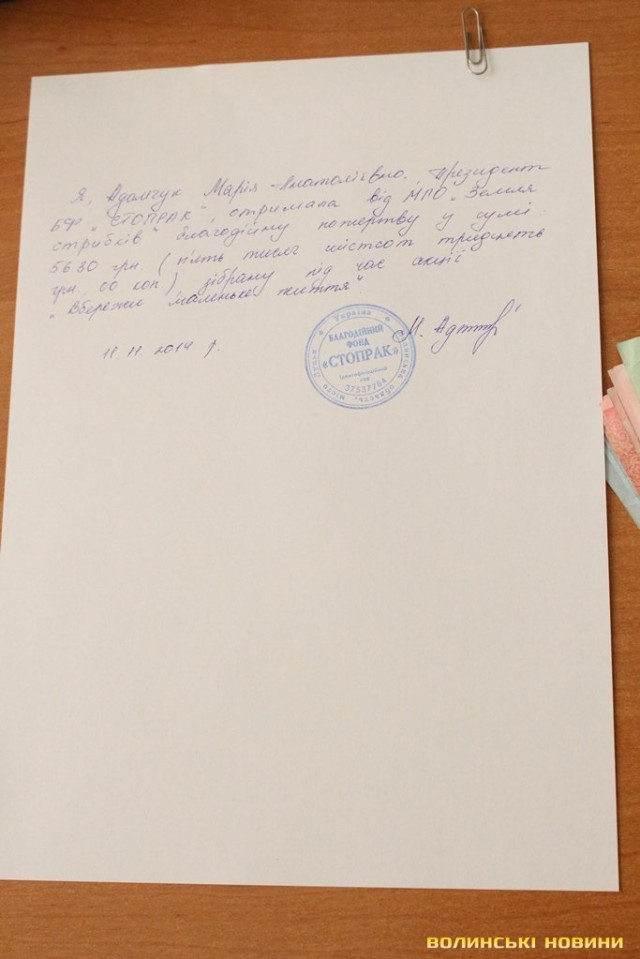 Я, Адамчук Марія Анатоліївна, Президент
БФ "СТОПРАК", отримала від МПО "Земля
стрибків" благодійну пожертву у сумі
5630 грн. (п'ять тисяч шістсот тридцять
грн. 00 коп) зібрану під час акції
"Збережи маленьке життя".
11.11.2014 р.
Україна
БЛАГОДІЙНИЙ
ФОНД
«СТОПРАК»
Ідентифікаційний
код
37537764
область, місто Луцьк
ВОЛИНСЬКІ НОВИНИ